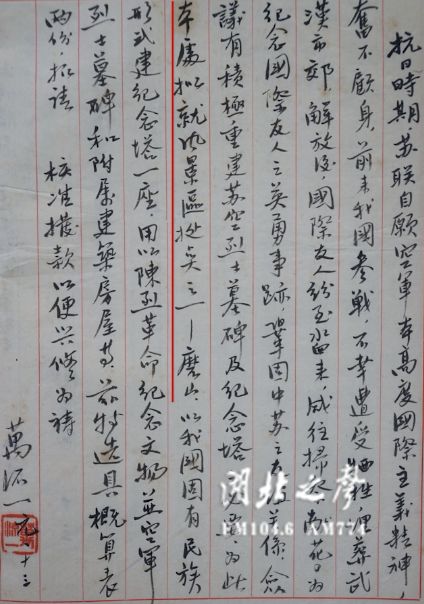 抗日時期，苏联自願空軍本高度國際主義精神，
奮不顧身，前来我國參戰，不幸遭受牺牲，埋葬武
漢市郊，解放後，國際友人紛至沓来，咸往掃墓献花，为
紀念國際友人之英勇事跡，鞏固中苏之友好关係，僉
議有積極重建苏空烈士墓碑及紀念塔之必要，为此
本處拟就風景區之一—磨山，以我國固有民族
形式建紀念塔一座，用以陳列革命紀念文物，並空軍
烈士墓碑和附屬建築房屋等，兹特造具概算表
兩份，拟請 核准撥款以便兴修为祷
萬流一 九、十三
湖北之声
FM104.6 AM774